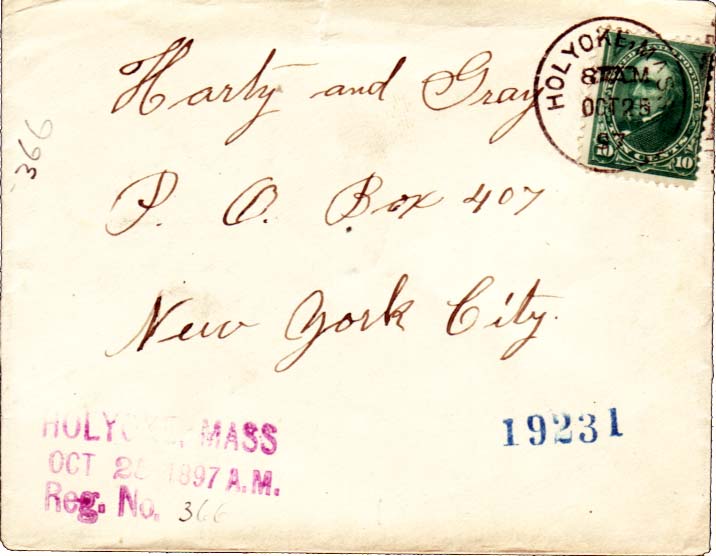 HOLYOKE, MASS
8 AM
OCT 25
97
10 10
Harty and Gray
366
P. O. Box 407
New York City.
HOLYOKE, MASS
OCT 1897 A.M.
Reg. No. 366
19231